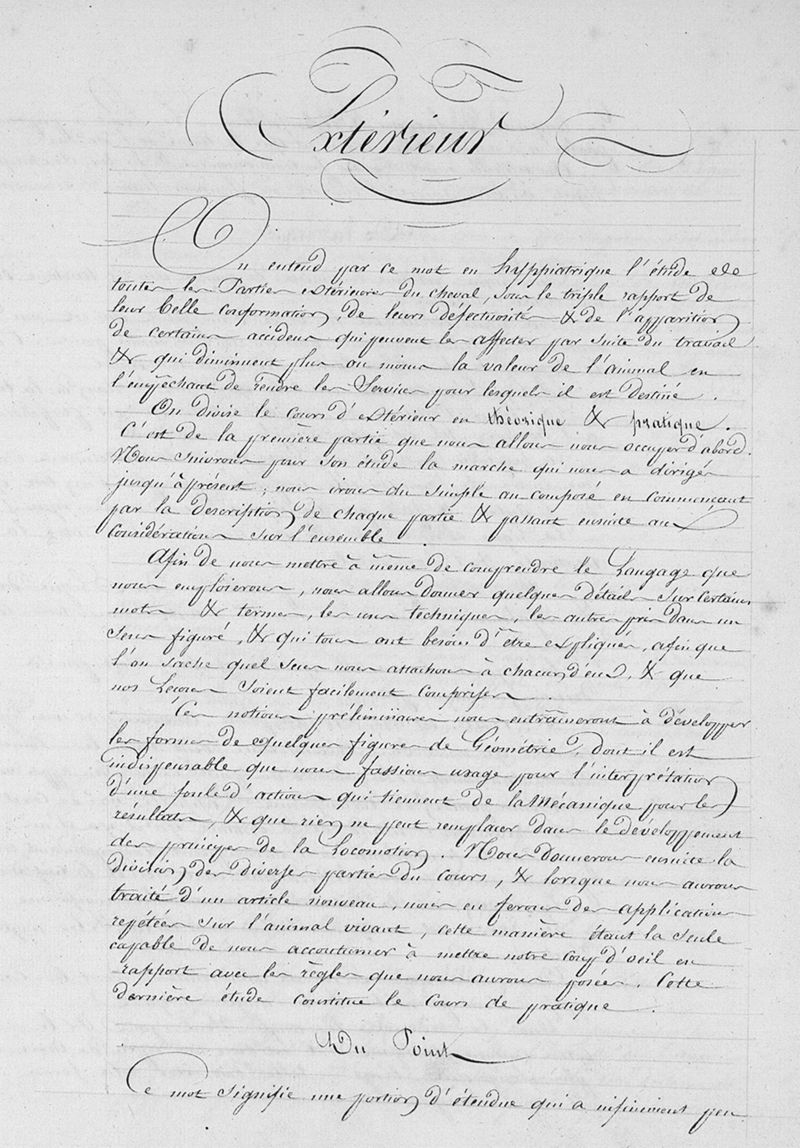 Extérieur
On entend par ce mot en hyppiatrique l'étude de
toutes les Parties extérieures du cheval, sous le triple rapport de
leur belle conformation, de leurs défectuosités & de l'apparition
de certains accidens qui peuvent les affecter par suite du travail
& qui diminuent plus ou moins la valeur de l'animal en
l'empêchant de rendre les Services pour lesquels il est Destiné.
On divise le cours d'extérieur en théorique & pratique.
C'est de la première partie que nous allons nous occuper d'abord.
Nous suivrons pour son étude la marche qui nous a dirigés
jusqu'à présent; nous irons du simple au composé en commençant
par la description de chaque partie & passant ensuite aux
Considérations sur l'ensemble.
Afin de nous mettre à même de comprendre le Langage que
nous emploierons, nous allons donner quelques détails sur certains
mots & termes, les uns techniques, les autres pris dans un
sens figuré, & qui tous ont besoin d'être expliqués, afin que
l'on sache quel sens nous attachons à chacun d'eux, & que
nos Leçons soient facilement comprises
Ces notions préliminaires nous entraîneront à développer
les formes de quelques figures de Géométrie, dont il est
indispensable que nous fassions usage pour l'interprétation
d'une foule d'actions qui tiennent de la Mécanique pour les
résultats, & que rien ne peut remplacer dans le développement
des principes de la Locomotion. Nous donnerons ensuite la
division des diverses parties du cours, & lorsque nous aurons
traité d'un article nouveau, nous en ferons des applications
répétées sur l'animal vivant, cette manière étant la seule
capable de nous accoutumer à mettre notre coup d'oeil en
rapport avec les règles que nous aurons posées. Cette
dernière étude constitue le cours de pratique.
Du Point
Ce mot signifie une portion d'étendue qui a infiniment peu